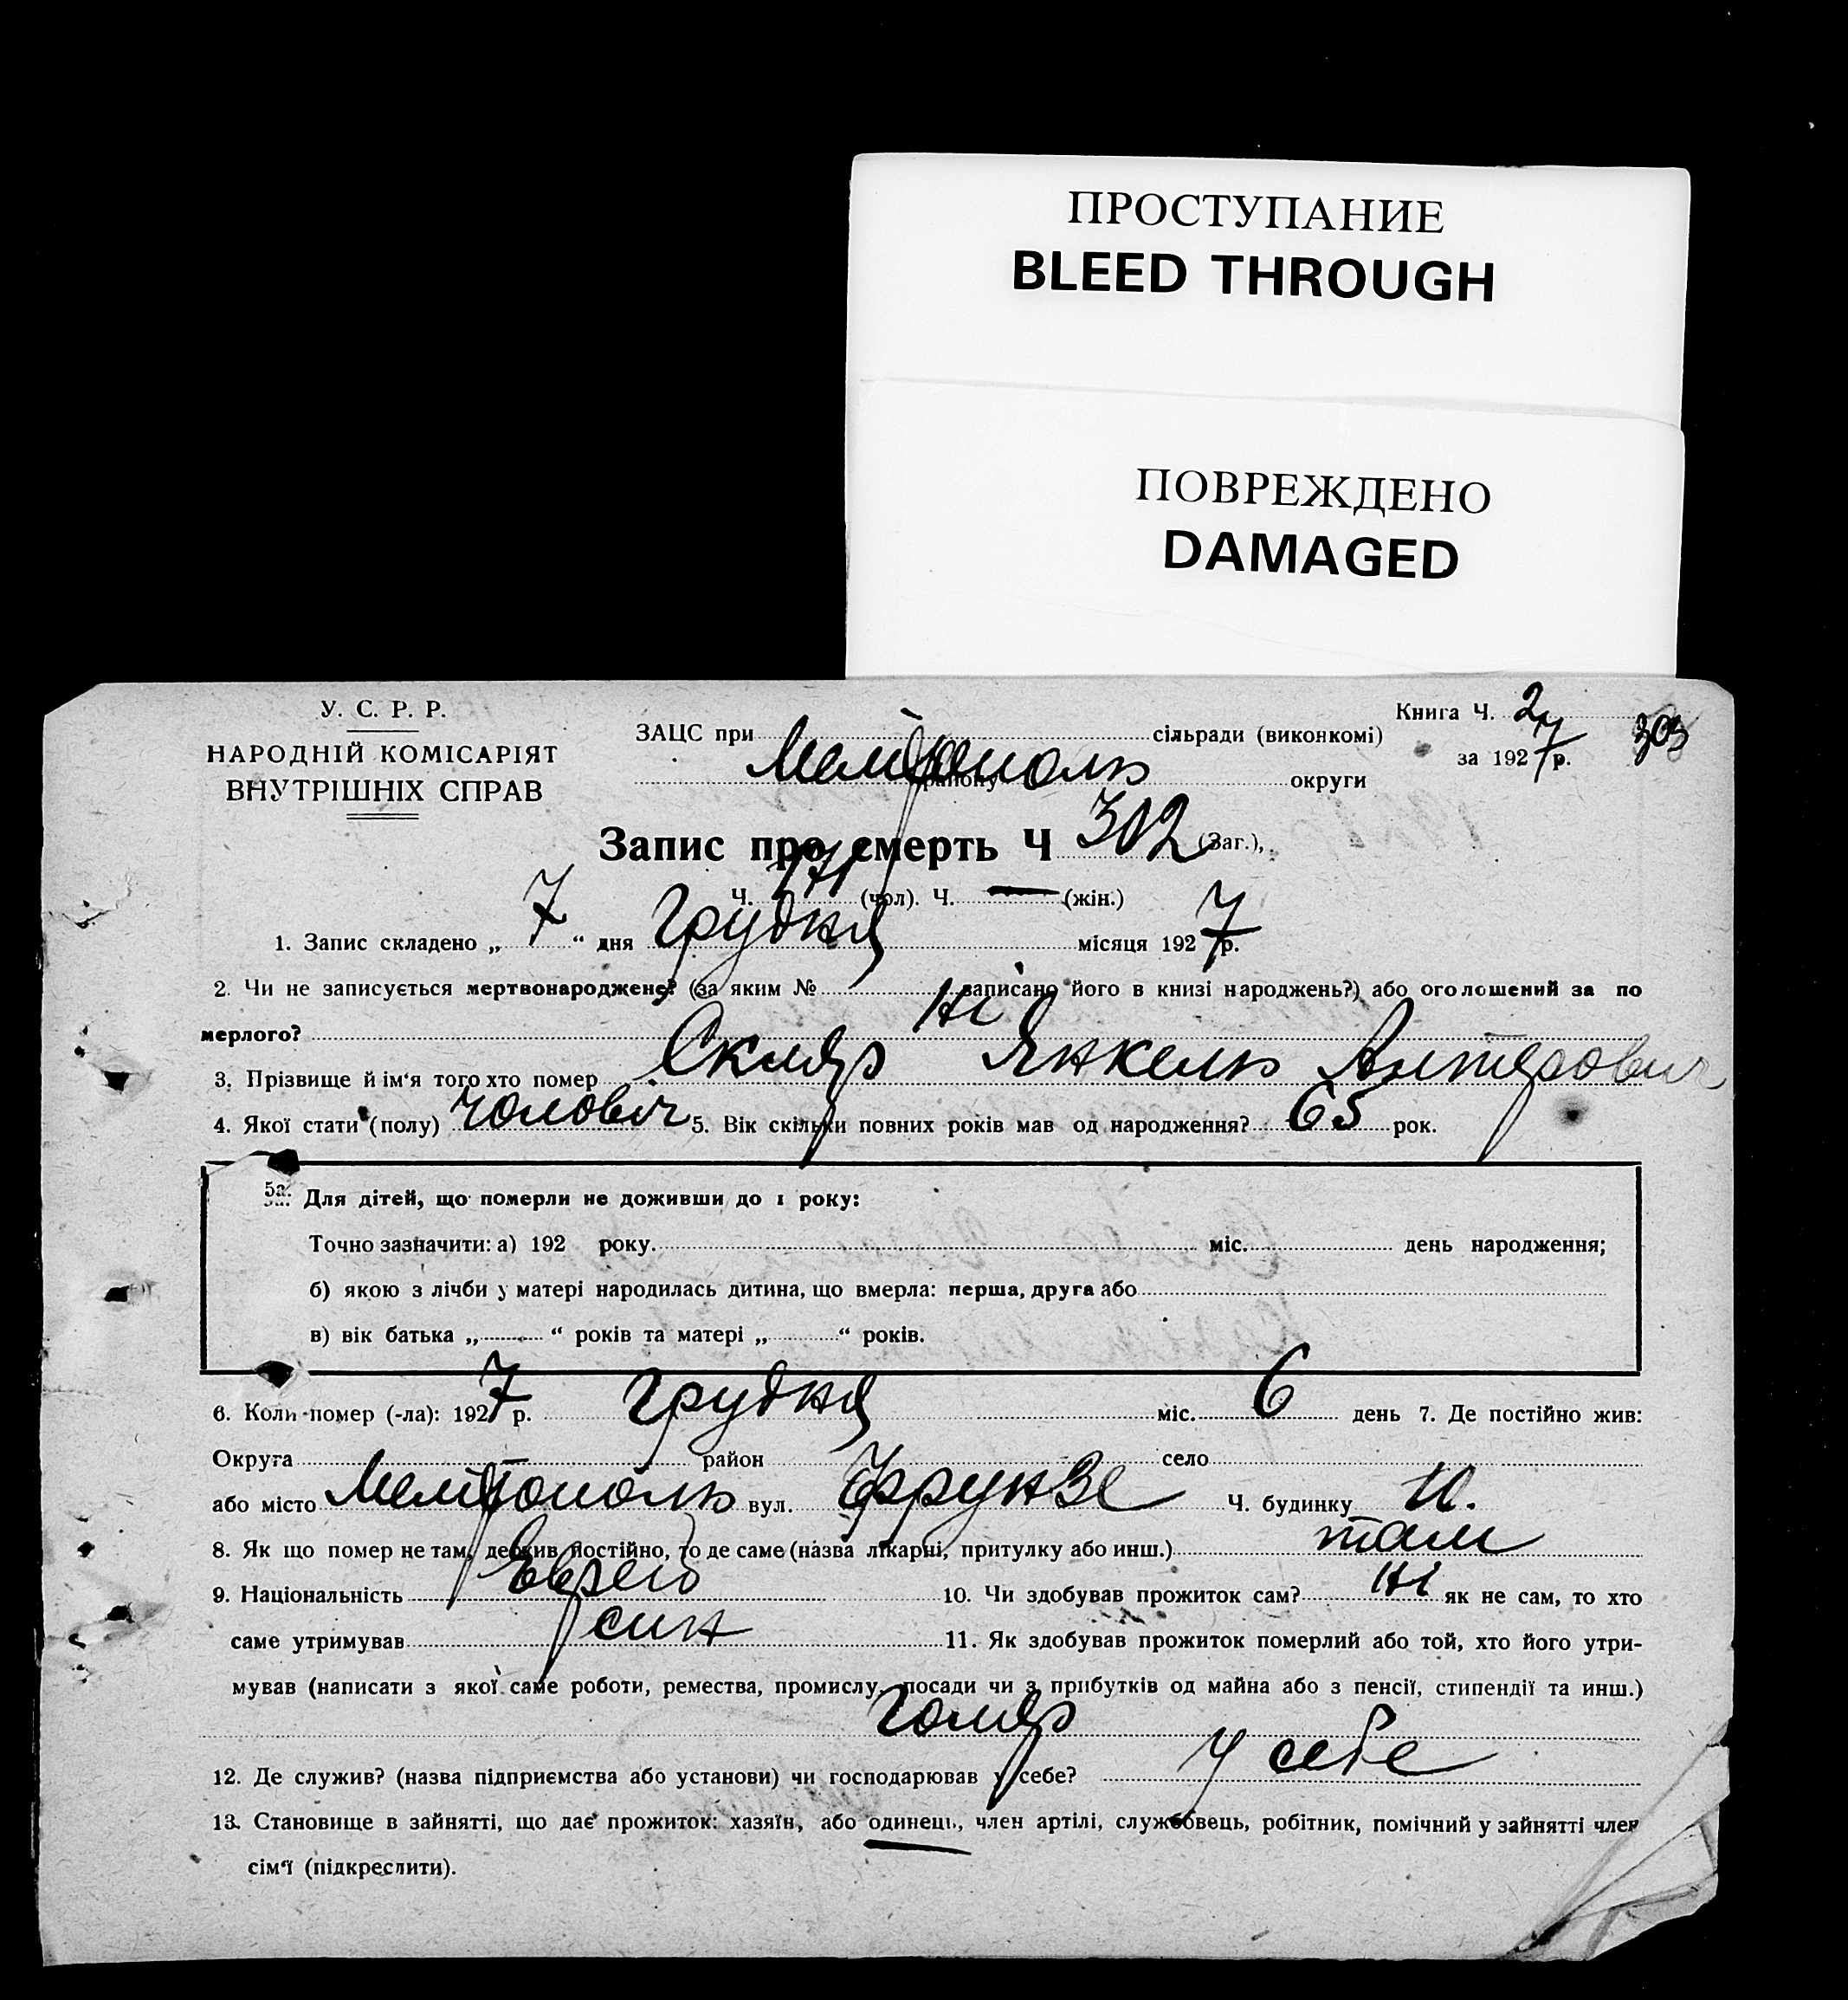 ПРОСТУПАНИЕ
BLEED THROUGH
ПОВРЕЖДЕНО
DAMAGED
У. С. Р. Р.
НАРОДНІЙ КОМІСАРІЯТ
ВНУТРІШНІХ СПРАВ
ЗАЦС при сільради (виконкомі)
Мелітополь району округи
Книга Ч. 2
за 1927 р.
303
Запис про смерть Ч 302 (Заг.),
Ч. 171 (чол). Ч. — (жін.)
1. Запис складено „ 7 “ дня Грудня місяця 1927 р.
2. Чи не записується мертвонароджене? (за яким № записано його в книзі народжень?) або оголошений за по
мерлого? Ні
3. Прізвище й ім‘я того хто помер Скляр Янкель
4. Якої стати (полу) чолович 5. Вік скільки повних років мав од народження? 65 рок.
5а. Для дітей, що померли не доживши до 1 року:
Точно зазначити: а) 192 року. міс. день народження;
б) якою з лічби у матері народилась дитина, що вмерла: перша, друга або
в) вік батька „ “ років та матері „ “ років.
6. Коли помер (-ла): 1927 р. Грудня міс. 6 день 7. Де постійно жив:
Округа район село
або місто Мелітополь вул. Фрунзе Ч. будинку
8. Як що помер не там, де жив постійно, то де саме (назва лікарні, притулку або инш.) там
9. Національність Еврей 10. Чи здобував прожиток сам? Ні як не сам, то хто
саме утримував син 11. Як здобував прожиток померлий або той, хто його утри-
мував (написати з якої саме роботи, ремества, промислу, посади чи з прибутків од майна або з пенсії, стипендії та инш.)
Голяр
12. Де служив? (назва підприємства або установи) чи господарював у себе? У себе
13. Становище в зайнятті, що дає прожиток: хазяїн, або одинець, член артілі, службовець, робітник, помічний у зайнятті член
сім‘ї (підкреслити).